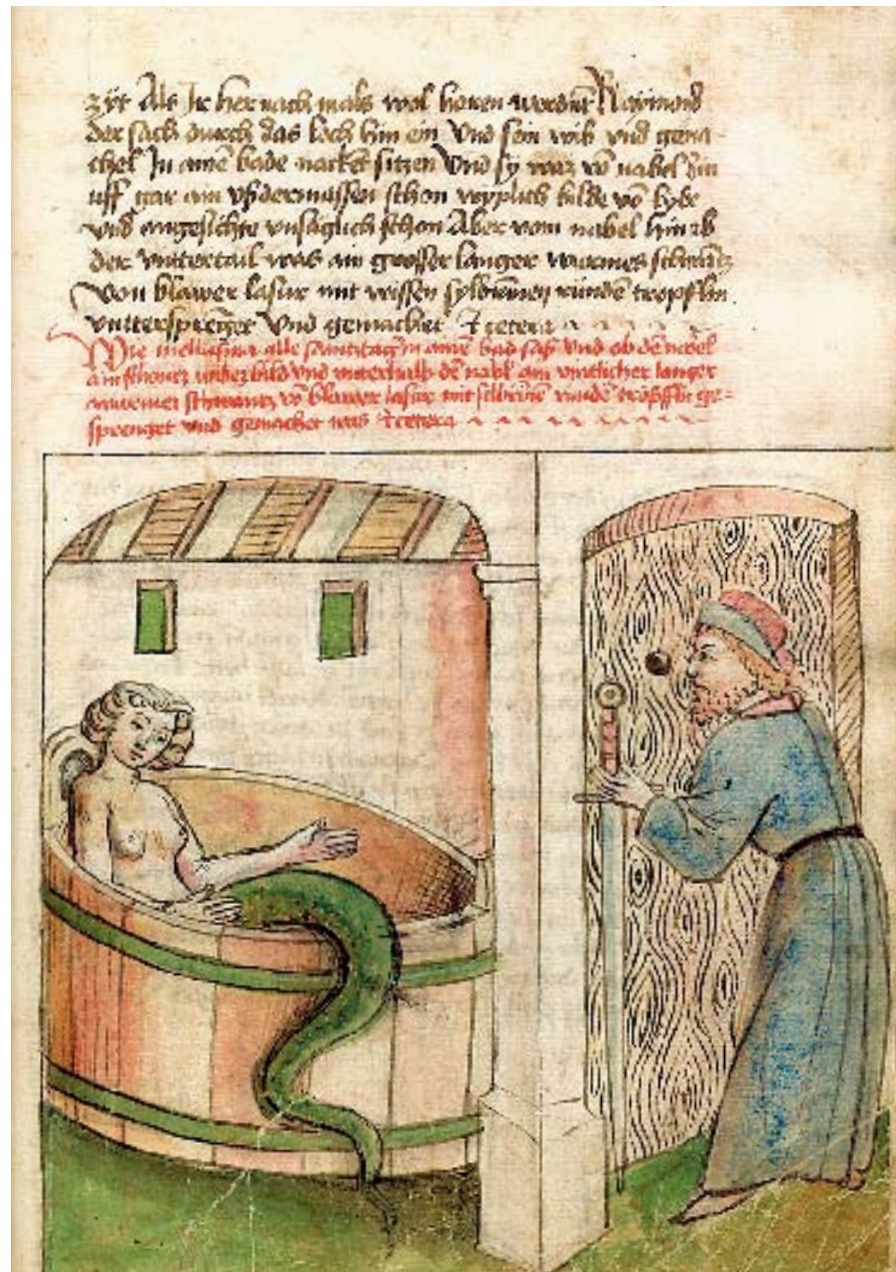 zyt Als Ir her nach mals wol horen werdent Raymond
der sach durch das loch hin ein Vnd sein wib vnd gema
chel In ainē bade nacket sitzen Vnd sy waz vō nabel hin
uff gar ain vßdermassen schon wyplich bilde vō lybe
vnd angesichte vnsaglich schon Aber vom nabel hin ab
der vntertail was ain grosser langer wurmes schwātz
von blawer lasur mit wissen sylberinen tropflin
vntterspreget Vnd gemachet et cetera
Wie mellusina alle samstag in ainē bad saß vnd ob dē nabel
ain schones bild vnd vnterhalb dē nabl ain langer
wurmes schwantz vō blawer lasur mit silberinē tropfflin ge=
sprenget vnd gemachet was et cetera